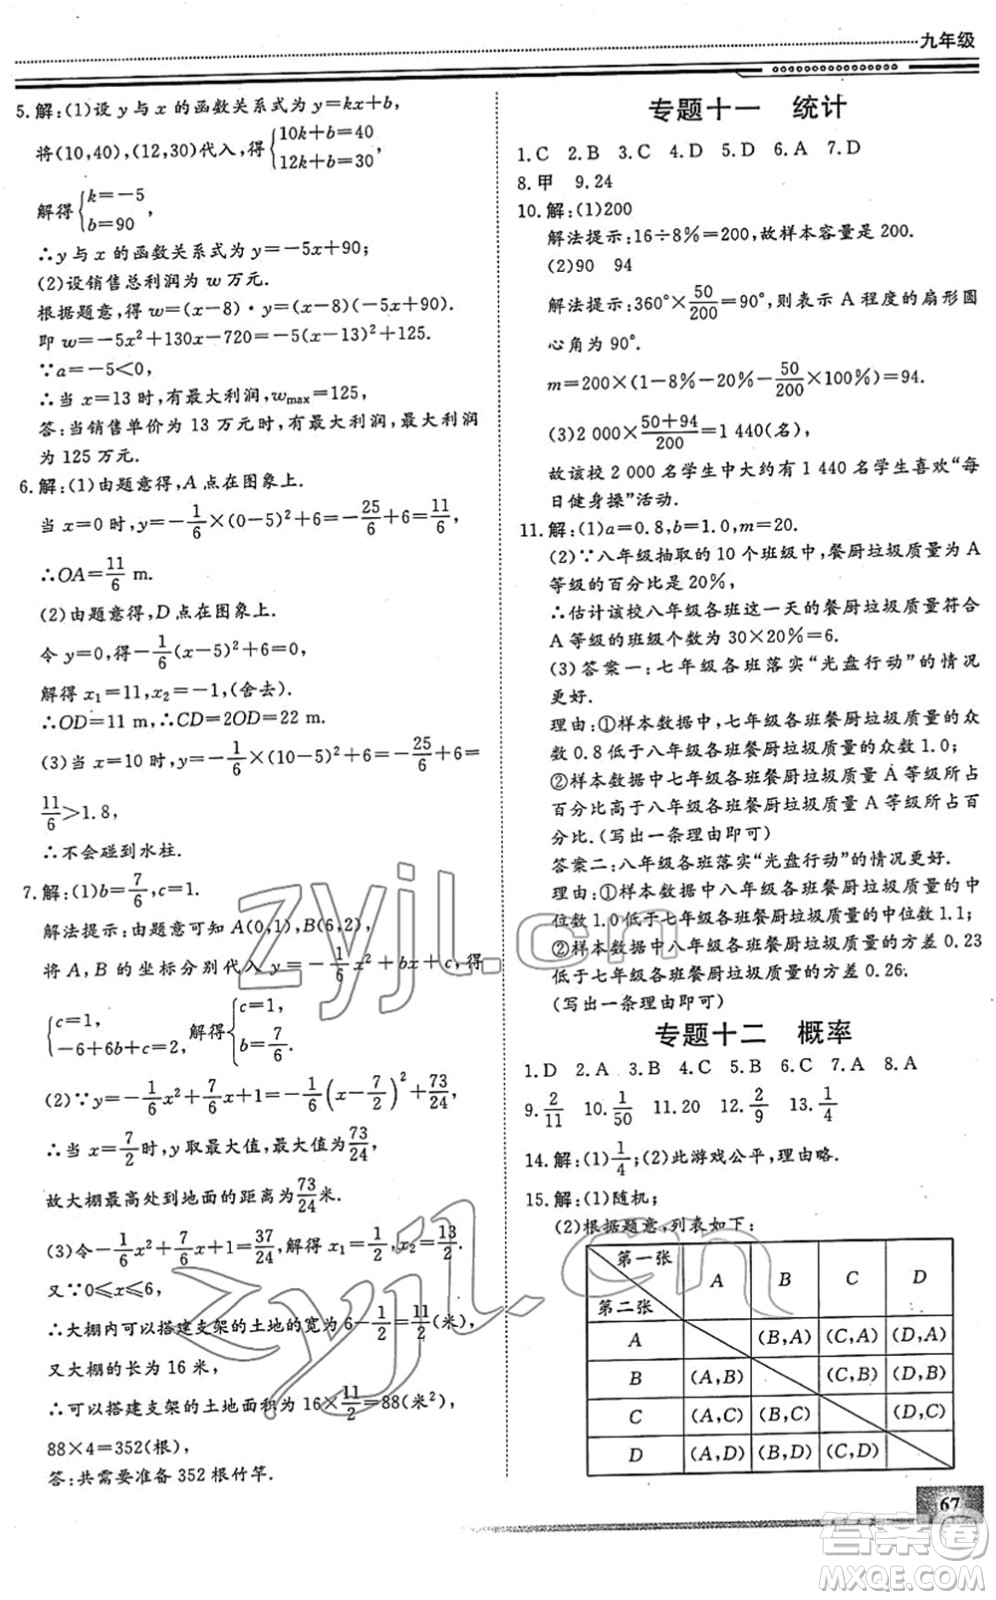 九年级
5.解:(1)设 y 与 x 的函数关系式为 y=kx+b,
将(10,40),(12,30)代入,得{10k+b=40
12k+b=30,
解得{k=-5
b=90,
∴y 与 x 的函数关系式为 y=-5x+90;
(2)设销售总利润为 w 万元.
根据题意,得 w=(x-8)·y=(x-8)(-5x+90).
即 w=-5x²+130x-720=-5(x-13)²+125.
∵a=-5<0,
∴当 x=13 时,有最大利润,wmax=125,
答:当销售单价为 13 万元时,有最大利润,最大利润
为 125 万元.
6.解:(1)由题意得,A 点在图象上.
当 x=0 时,y=-1/6×(0-5)²+6=-25/6+6=11/6,
∴OA=11/6 m.
(2)由题意得,D 点在图象上.
令 y=0,得-1/6(x-5)²+6=0,
解得 x₁=11,x₂=-1,(舍去).
∴OD=11 m,∴CD=2OD=22 m.
(3)当 x=10 时,y=-1/6×(10-5)²+6=-25/6+6=
11/6>1.8,
∴不会碰到水柱.
7.解:(1)b=7/6,c=1.
解法提示:由题意可知 A(0,1),B(6,2),
将 A,B 的坐标分别代入 y=-1/6x²+bx+c,得
{c=1,
-6+6b+c=2, 解得{c=1,
b=7/6.
(2)∵y=-1/6x²+7/6x+1=-1/6(x-7/2)²+73/24,
∴当 x=7/2时,y 取最大值,最大值为73/24,
故大棚最高处到地面的距离为73/24米.
(3)令-1/6x²+7/6x+1=37/24,解得 x₁=1/2,x₂=13/2.
又∵0≤x≤6,
∴大棚内可以搭建支架的土地的宽为 6-1/2=11/2(米),
又大棚的长为 16 米,
∴可以搭建支架的土地面积为 16×11/2=88(米²),
88×4=352(根),
答:共需要准备 352 根竹竿.
专题十一 统计
1.C 2.B 3.C 4.D 5.D 6.A 7.D
8.甲 9.24
10.解:(1)200
解法提示:16÷8%=200,故样本容量是 200.
(2)90 94
解法提示:360°×50/200=90°,则表示 A 程度的扇形圆
心角为 90°.
m=200×(1-8%-20%-50/200×100%)=94.
(3)2 000×(50+94)/200=1 440(名),
故该校 2 000 名学生中大约有 1 440 名学生喜欢“每
日健身操”活动.
11.解:(1)a=0.8,b=1.0,m=20.
(2)∵八年级抽取的 10 个班级中,餐厨垃圾质量为 A
等级的百分比是 20%,
∴估计该校八年级各班这一天的餐厨垃圾质量符合
A 等级的班级个数为 30×20%=6.
(3)答案一:七年级各班落实“光盘行动”的情况
更好.
理由:①样本数据中,七年级各班餐厨垃圾质量的众
数 0.8 低于八年级各班餐厨垃圾质量的众数 1.0;
②样本数据中七年级各班餐厨垃圾质量 A 等级所占
百分比高于八年级各班餐厨垃圾质量 A 等级所占百
分比.(写出一条理由即可)
答案二:八年级各班落实“光盘行动”的情况更好.
理由:①样本数据中八年级各班餐厨垃圾质量的中
位数 1.0 低于七年级各班餐厨垃圾质量的中位数 1.1;
②样本数据中八年级各班餐厨垃圾质量的方差 0.23
低于七年级各班餐厨垃圾质量的方差 0.26.
(写出一条理由即可)
专题十二 概率
1.D 2.A 3.B 4.C 5.B 6.C 7.A 8.A
9.2/11 10.1/50 11.20 12.2/9 13.1/4
14.解:(1)1/4;(2)此游戏公平,理由略.
15.解:(1)随机;
(2)根据题意,列表如下:
第一张 第二张 A B C D
A (B,A) (C,A) (D,A)
B (A,B) (C,B) (D,B)
C (A,C) (B,C) (D,C)
D (A,D) (B,D) (C,D)
67
zyjl.cn
zyjl.cn
答案圈
MXQE.COM